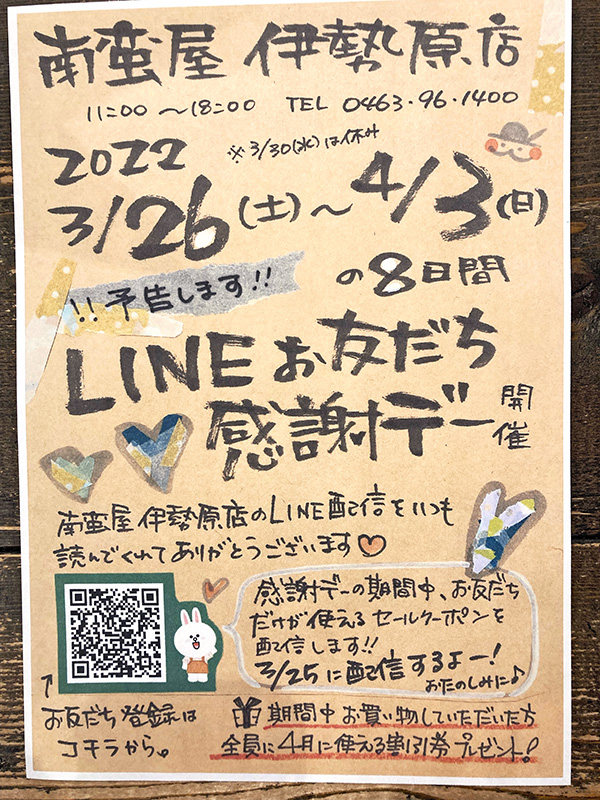 南蛮屋 伊勢原店
11:00 〜18:00 TEL 0463・96・1400
※3/30(水)は休み
2022
3/26(土)〜4/3(日)
の8日間
!!予告します!!
LINEお友だち
感謝デー開催
南蛮屋 伊勢原店のLINE配信をいつも
読んでくれてありがとうございます♡
感謝デーの期間中、お友だち
だけが使えるセールクーポンを
配信します!!
3/25に配信するよー!
おたのしみに♪
↑
お友だち登録は
コチラから。
期間中お買い物していただいた方
全員に4月に使える割引券プレゼント!